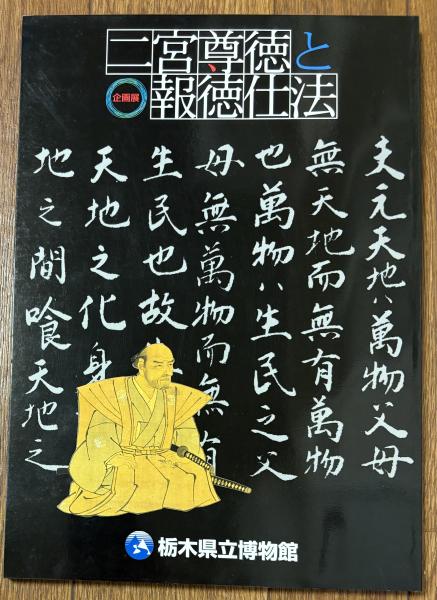 二宮尊徳と
企画展
報徳仕法
夫元天地ハ萬物父母
無天地而無有萬物
也萬物ハ生民之父
母無萬物而無有
生民也故
天地之化身
地之間喰天地之
栃木県立博物館